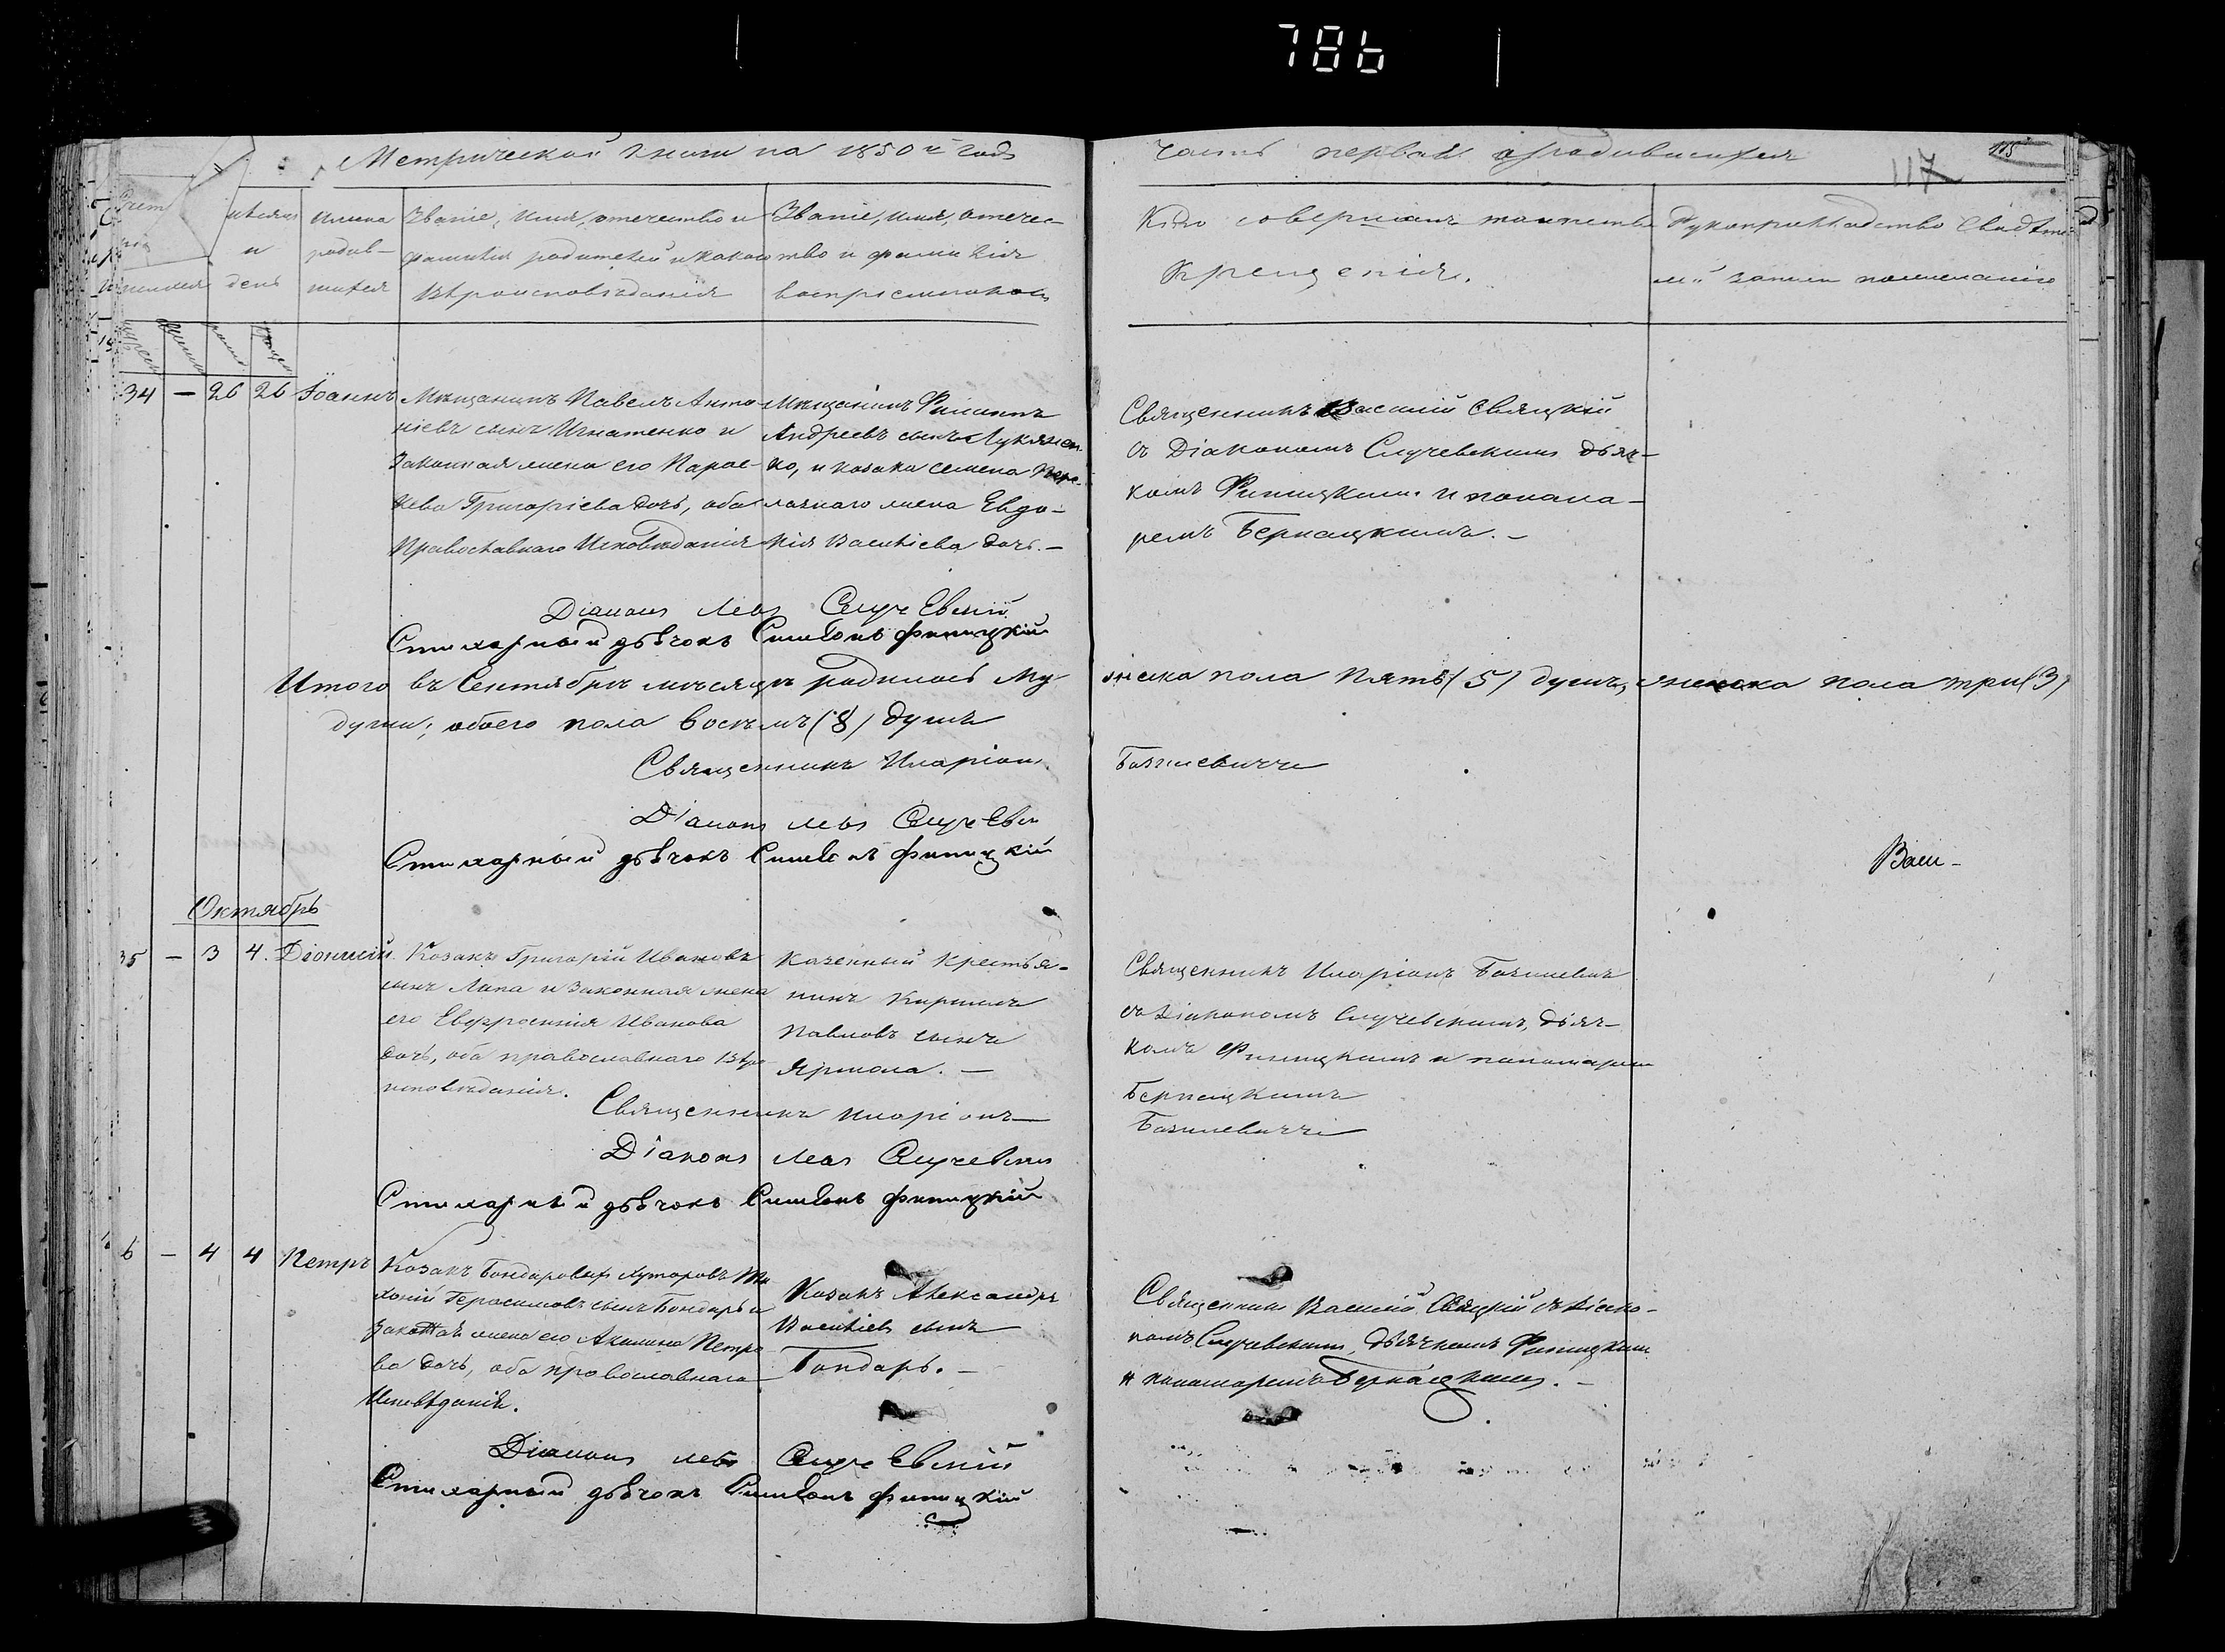 786
Метрической книги на 1850й годъ
часть первая о родившихся
117
115
Счет
мѣсяцъ
и
день
имена
родив-
шихся
Званіе, имя, отчество и
фамилія родителей и какого
вѣроисповѣданія
Званіе, имя, отчес-
тво и фамилія
воспріемниковъ
Кто совершалъ таинство
крещенія.
Рукоприкладство свидѣте-
лей записи по желанію
34 — 26 26 Іоаннъ
Мѣщанинъ Павелъ Анто-
ніевъ сынъ Игнатенко и
Законная жена его Парас-
кева Григоріева дочь, оба
Православнаго Исповѣданія
Мѣщанинъ Филиппъ
Андреевъ сынъ Лукянен-
ко, и козака Семена
жена Евдо-
кія Василіева дочь. —
Священникъ Василій Свяцкій
съ Діакономъ Случевскимъ дьяч-
комъ Финицкимъ и понама-
ремъ Бернацкимъ. —
Діаконъ Левъ Случевскій
Стихарный дьячокъ Симеонъ Финицкій
Итого въ Сентябрѣ мѣсяцѣ родилось Му-
жеска пола пять (5) душъ, женска пола три (3)
души; обоего пола восемъ (8) душъ
Священникъ Иларіонъ
Базилевичъ
Діаконъ Левъ Случевск
Стихарный дьячокъ Симеонъ Финицкій
Ваш-
Октябрь
35 — 3 4. Діонисій
Козакъ Григорій Ивановъ
сынъ Лапа и Законная жена
его Евфросинія Иванова
дочь, оба православнаго вѣро
исповѣданія.
Казенный Крестья-
нинъ Кириллъ
Павловъ сынъ
Ярмола. —
Священникъ Иларіонъ Базилевич
съ Діакономъ Случевскимъ, дьяч-
комъ Финицкимъ и пономаремъ
Бернацкимъ
Священникъ Иларіонъ
Базилевичъ
Діаконъ Левъ Случевскій
Стихарный дьячокъ Симеонъ Финицкій
6 — 4 4 Петръ
Козакъ Бондаровыхъ хуторовъ Ти
хоній Герасимовъ сынъ Бондарь и
законная жена его Акилина Петро
ва дочь, оба православнаго
Исповѣданія.
Козакъ Александръ
Василіевъ сынъ
Бондарь. —
Священникъ Василій Свяцкій съ Діако-
номъ Случевскимъ, дьячкомъ Финицким
и понамаремъ Бернацкимъ. —
Діаконъ Левъ Случевскій
Стихарный дьячокъ Симеонъ Финицкій